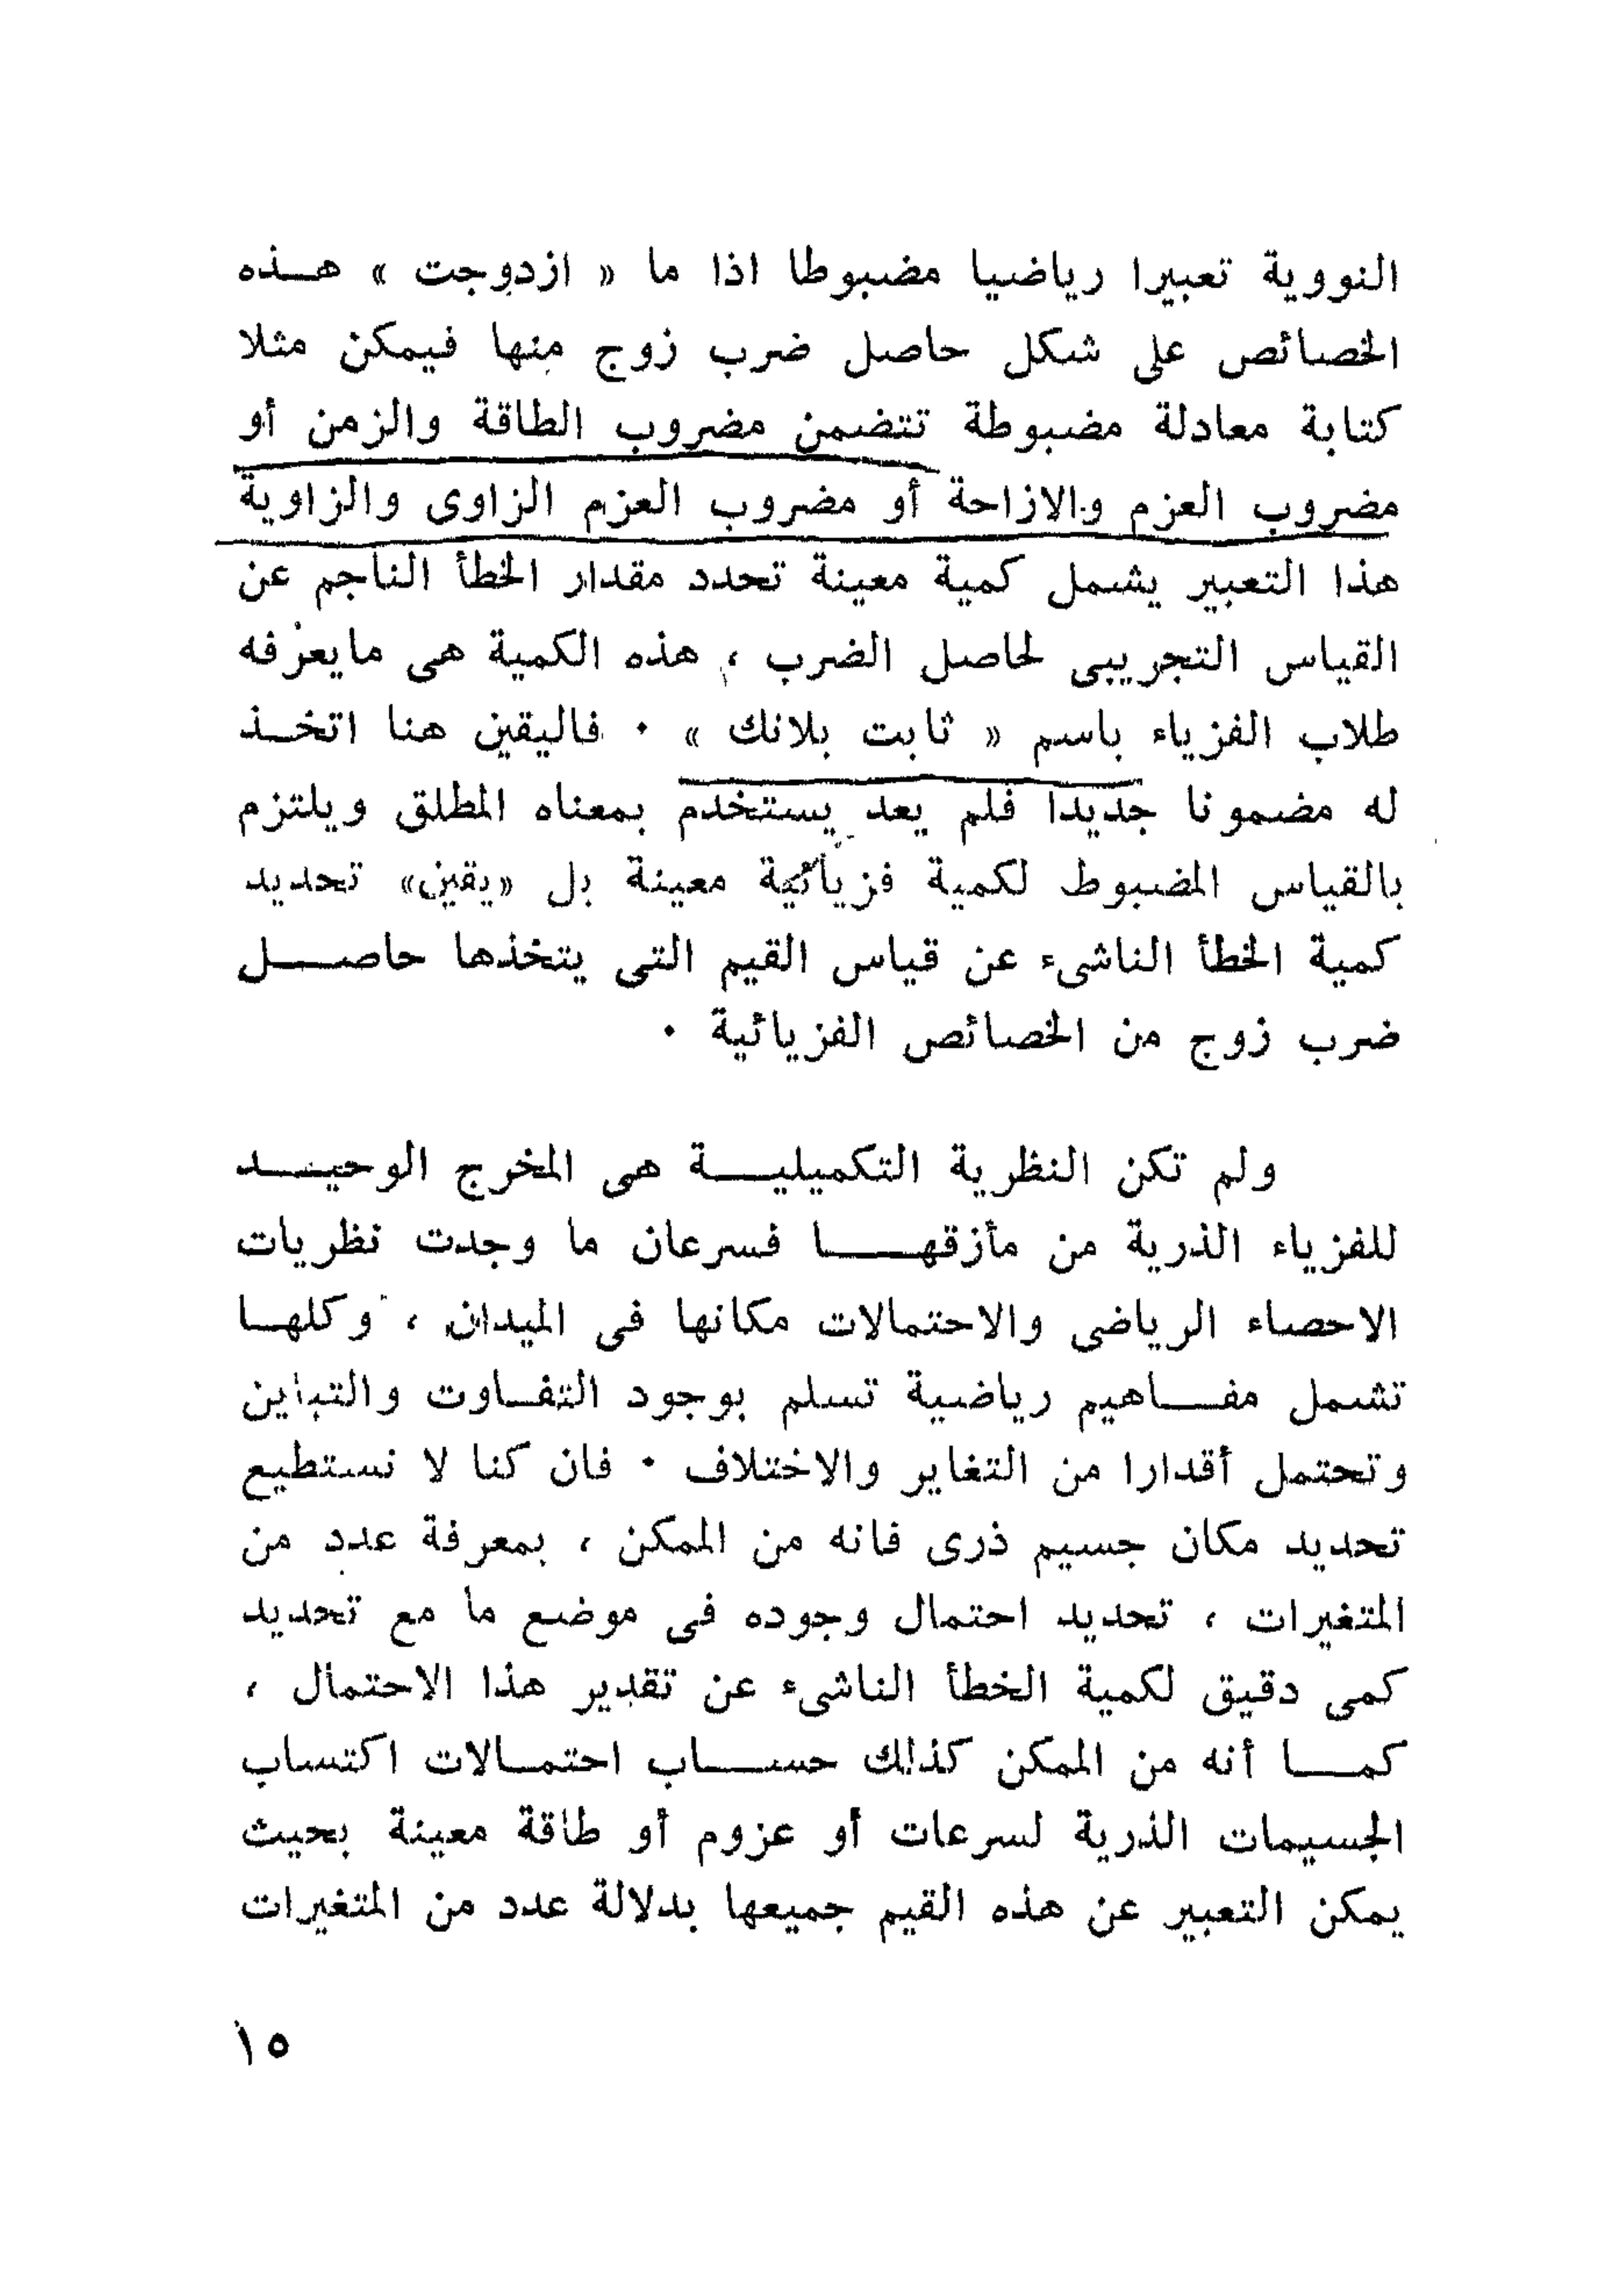 النووية تعبيرا رياضيا مضبوطا اذا ما « ازدوجت » هـذه
الخصائص على شكل حاصل ضرب زوج منها فيمكن مثلا
كتابة معادلة مضبوطة تتضمن مضروب الطاقة والزمن أو
مضروب العزم والازاحة أو مضروب العزم الزاوى والزاوية
هذا التعبير يشمل كمية معينة تحدد مقدار الخطأ الناجم عن
القياس التجريبى لحاصل الضرب ، هذه الكمية هى مايعرفه
طلاب الفزياء باسم « ثابت بلانك » ٠ فاليقين هنا اتخـذ
له مضمونا جديدا فلم يعد يستخدم بمعناه المطلق ويلتزم
بالقياس المضبوط لكمية فزيائية معينة بل «يقين» تحديد
كمية الخطأ الناشىء عن قياس القيم التى يتخذها حاصــل
ضرب زوج من الخصائص الفزيائية ٠
ولم تكن النظرية التكميليــة هى المخرج الوحيــد
للفزياء الذرية من مأزقهــا فسرعان ما وجدت نظريات
الاحصاء الرياضى والاحتمالات مكانها فى الميدان ، وكلهـا
تشمل مفــاهيم رياضية تسلم بوجود التفـاوت والتباين
وتحتمل أقدارا من التغاير والاختلاف ٠ فان كنا لا نستطيع
تحديد مكان جسيم ذرى فانه من الممكن ، بمعرفة عدد من
المتغيرات ، تحديد احتمال وجوده فى موضع ما مع تحديد
كمى دقيق لكمية الخطأ الناشىء عن تقدير هذا الاحتمال ،
كمــا أنه من الممكن كذلك حســاب احتمـالات اكتساب
الجسيمات الذرية لسرعات أو عزوم أو طاقة معينة بحيث
يمكن التعبير عن هذه القيم جميعها بدلالة عدد من المتغيرات
١٥